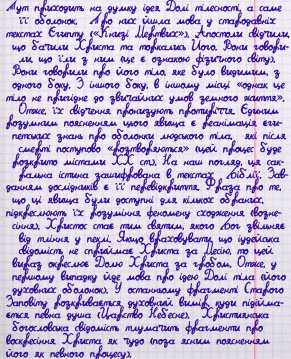 Тут приходить на думку ідея Долі тілесності, а саме
її оболонок. Про них йшла мова у стародавніх
текстах Єгипту («Книзі Мертвих»). Апостоли відчули,
що бачили Христа та торкались Його. Вони говори-
ли, що їли з ним (це є ознакою фізичного світу).
Вони говорили про його тіло, яке було видимим, з
одного боку. З іншого боку, в іншому місці «однак це
тіло не пригідне до звичайних умов земного життя».
Отже, їх свідчення пронизують протиріччя. Єдиним
розумним поясненням цього явища є реанімація єги-
петських знань про оболонки людського тіла, які після
смерті поступово «розтворяються» (цей процес буде
розкрито містами ХХ ст). На наш погляд, ця сак-
ральна істина зашифрована в текстах Біблії. Зав-
данням дослідників є її перевідкриття. Фраза про те,
що ці явища були доступні для кількох обраних,
підкреслюють їх розуміння феномену сходження (возне-
сіння). Христос стає тим святим, якого Бог звільняє
від тління у пеклі. Якщо враховувати, що іудейська
свідомість не сприймає Христа за Месію, то цей
вираз окреслює Долю Христа за гробом. Отже, у
першому випадку йде мова про ідею Долі тіла його
духовних оболонок). У останньому фрагменті Старого
Заповіту розкривається духовний вимір, куди підійма-
ється певна душа (Царство Небесне). Християнська
богословська свідомість тлумачить фрагменти про
воскресіння Христа як чудо (поза ясним поясненням
його як певного процесу).